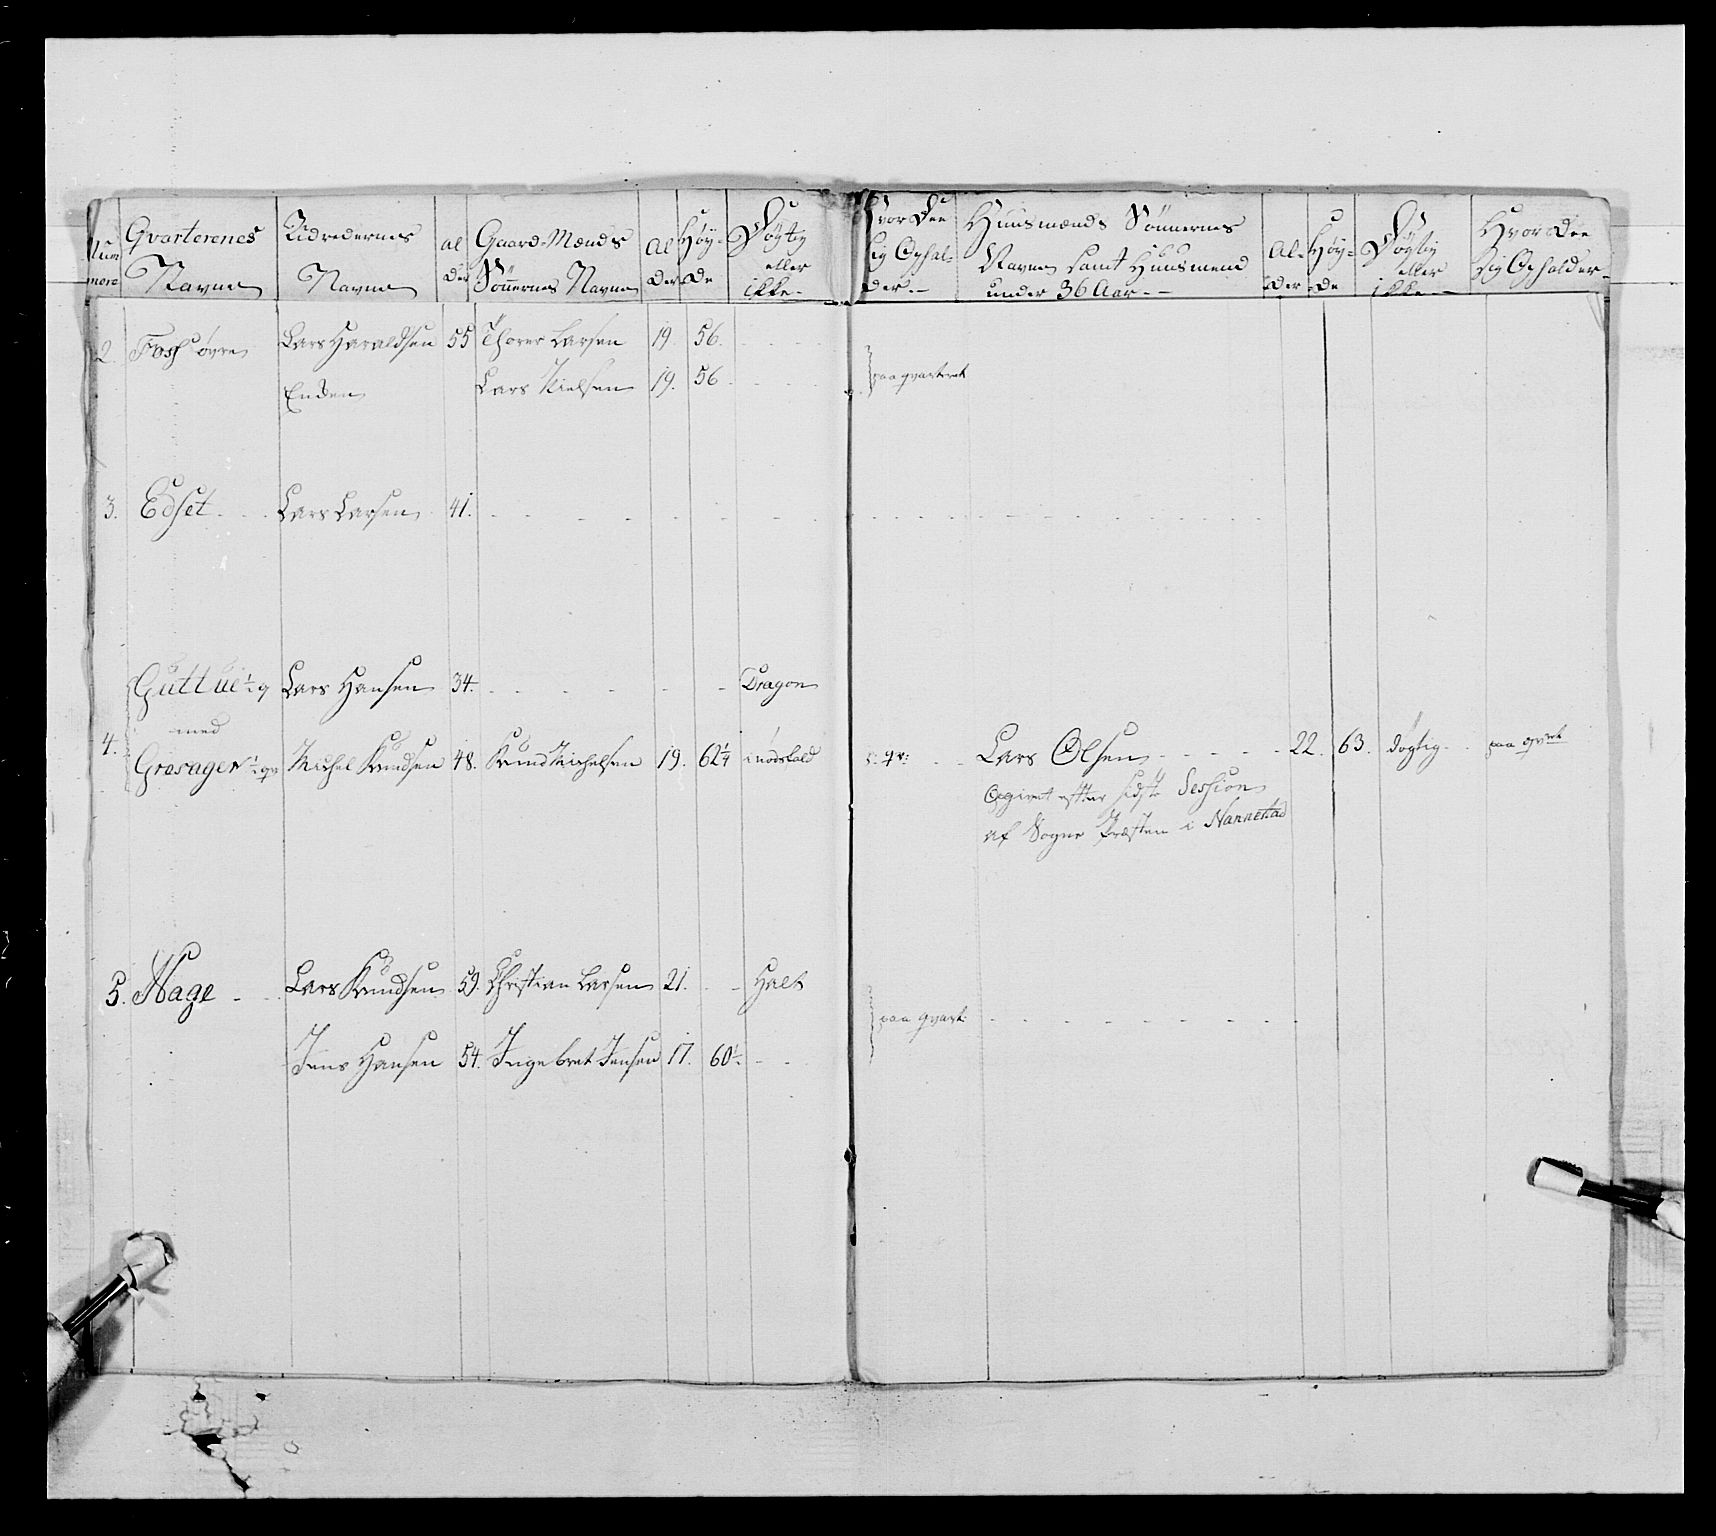 Num mere | Qvarterenes Navne | Ridredernes Navne | al der | Gaard-Mænds Sönnernes Navne | Al der | Höy- de | Döytig eller ikke.- | Hvor Dee sig Ophol- der.- | Huusmænds Sönnernes Navne samt Huusmend under 36 Aar.- | Al- der | Höy- de | Döytig eller ikke.- | Hvor Dee sig Opholder.-
2. Foss övre | Lars Haraldsen | 55 | Thorer Larsen | 19. | 56.
Enden | Lars Nielsen | 19. | 56 | paa qvarteret
3. Edset | Lars Larsen | 41.
Guttue ½ q | Lars Hansen | 34. | Dragon
med
4. Grøsager ½ qv | Michel Knudsen | 48. | Knud Michelsen | 19. | 62¼ | i nödsfald | Lars Olsen | 22. | 63. | döytig | paa qvrt
Opgivet efter sidste Session
af Sogne Præsten i Nannestad
5. Hage | Lars Knudsen | 59. | Christian Larsen | 21. | Halt
paa qvart:
Jens Hansen | 54. | Ingebret Jensen | 17. | 60½